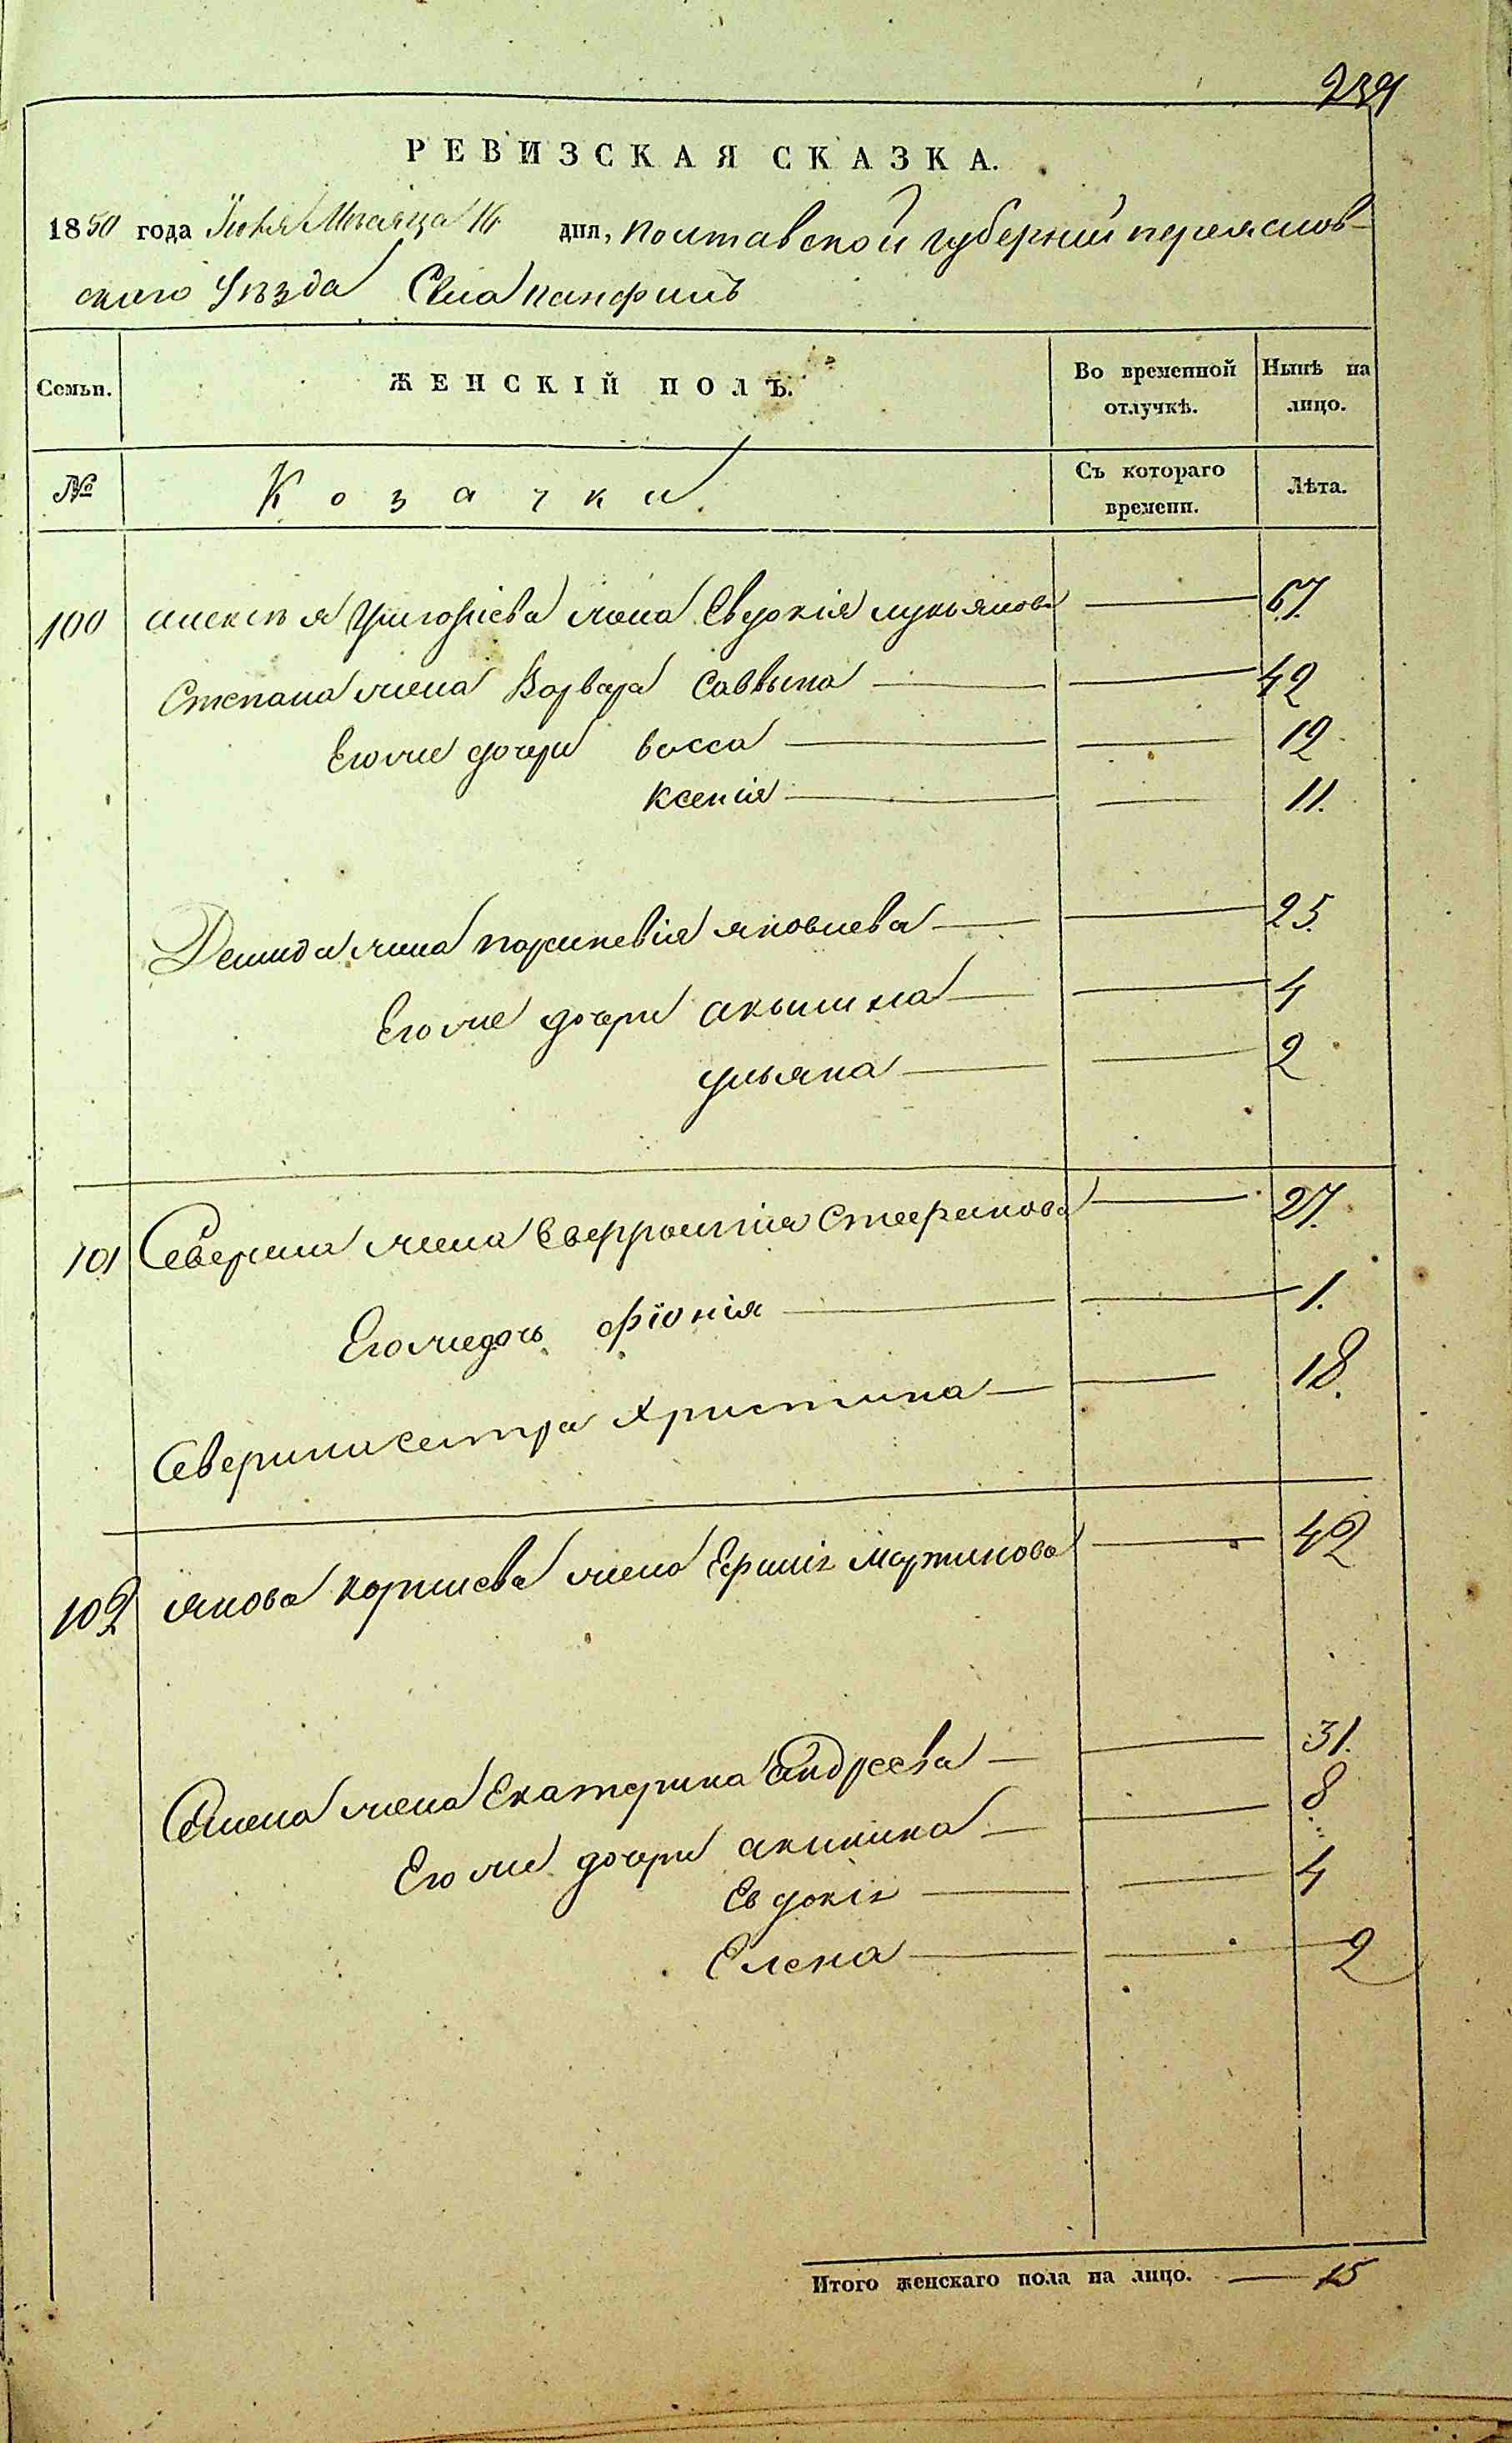 239
РЕВИЗСКАЯ СКАЗКА.
1850 года Месяца 16 дня, полтавской губернии переяслов-
скаго уѣзда Села панфилъ
Семьи. ЖЕНСКІЙ ПОЛЪ. Во временной отлучкѣ. Нынѣ на лицо.
№ Козачки Съ котораго времени. Лѣта.
100 алексѣя григоріева жена Евдокія лукьянова — 67.
Степана жена Варвара Саввина — 42
Его же дочери васса — 12
Ксенія — 11.
Демида жена параскевія яковлева — 25.
Его же дочери акылина — 4
ульяна — 2
101 Северина жена Евфросинія Стефанова — 27.
Его же дочь фіонія — 1.
Северина сестра христина — 18.
102 якова жена Ефимія Мартинова — 42
Семена жена Екатерина андреева — 31.
Его же дочери акилина — 8
Евдокія — 4
Елена — 2
Итого женскаго пола на лицо. — 15